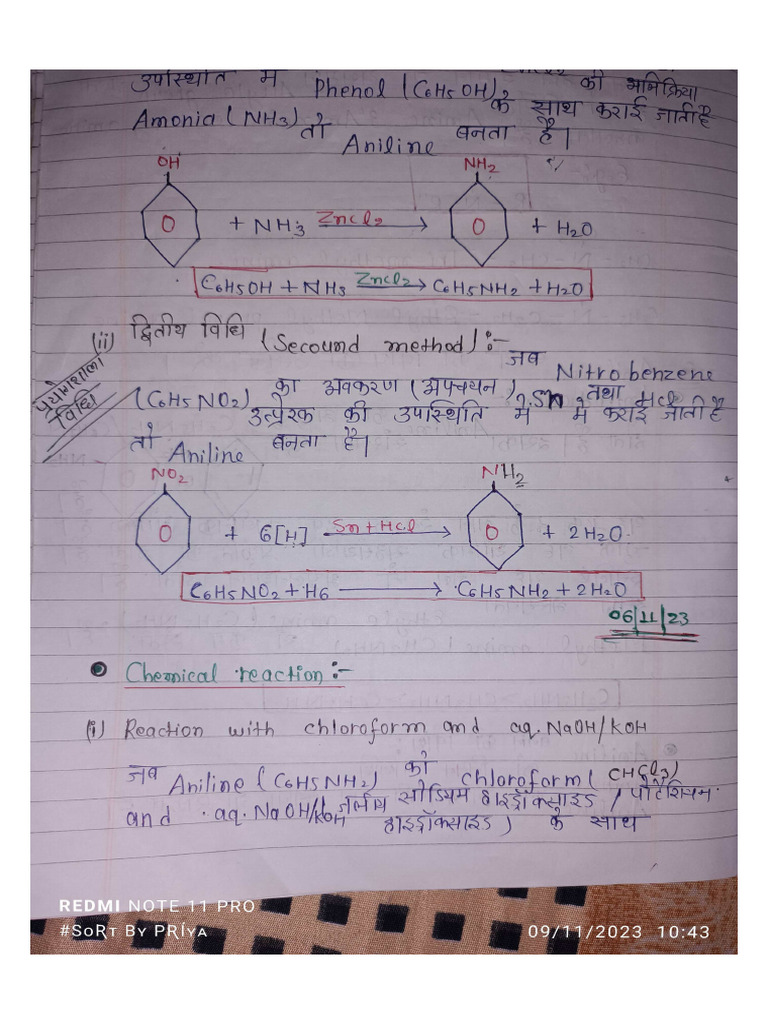 उपस्थिति में Phenol (C6H5OH) की अभिक्रिया
Amonia (NH3) के साथ कराई जाती है
तो Aniline बनता है।
OH NH2
+ NH3 Zncl2 → + H2O
C6H5OH + NH3 Zncl2 → C6H5NH2 + H2O
(ii) द्वितीय विधि (Secound method) :-
प्रयोगशाला विधि
जब Nitrobenzene
(C6H5NO2) का अवकरण (अपचयन), Sn तथा Hcl
उत्प्रेरक की उपस्थिति में में कराई जाती है
तो Aniline बनता है।
NO2 NH2
+ 6[H] Sn + Hcl → + 2H2O
C6H5NO2 + H6 → C6H5NH2 + 2H2O
06/11/23
Chemical reaction :-
(i) Reaction with chloroform and aq. NaOH/KOH
जब Aniline (C6H5NH2) को chloroform (CHCl3)
and aq. NaOH/KOH (जलीय सोडियम हाइड्रॉक्साइड / पोटैशियम
हाइड्रॉक्साइड) के साथ
REDMI NOTE 11 PRO
#SoRT By PRÍYA
09/11/2023 10:43